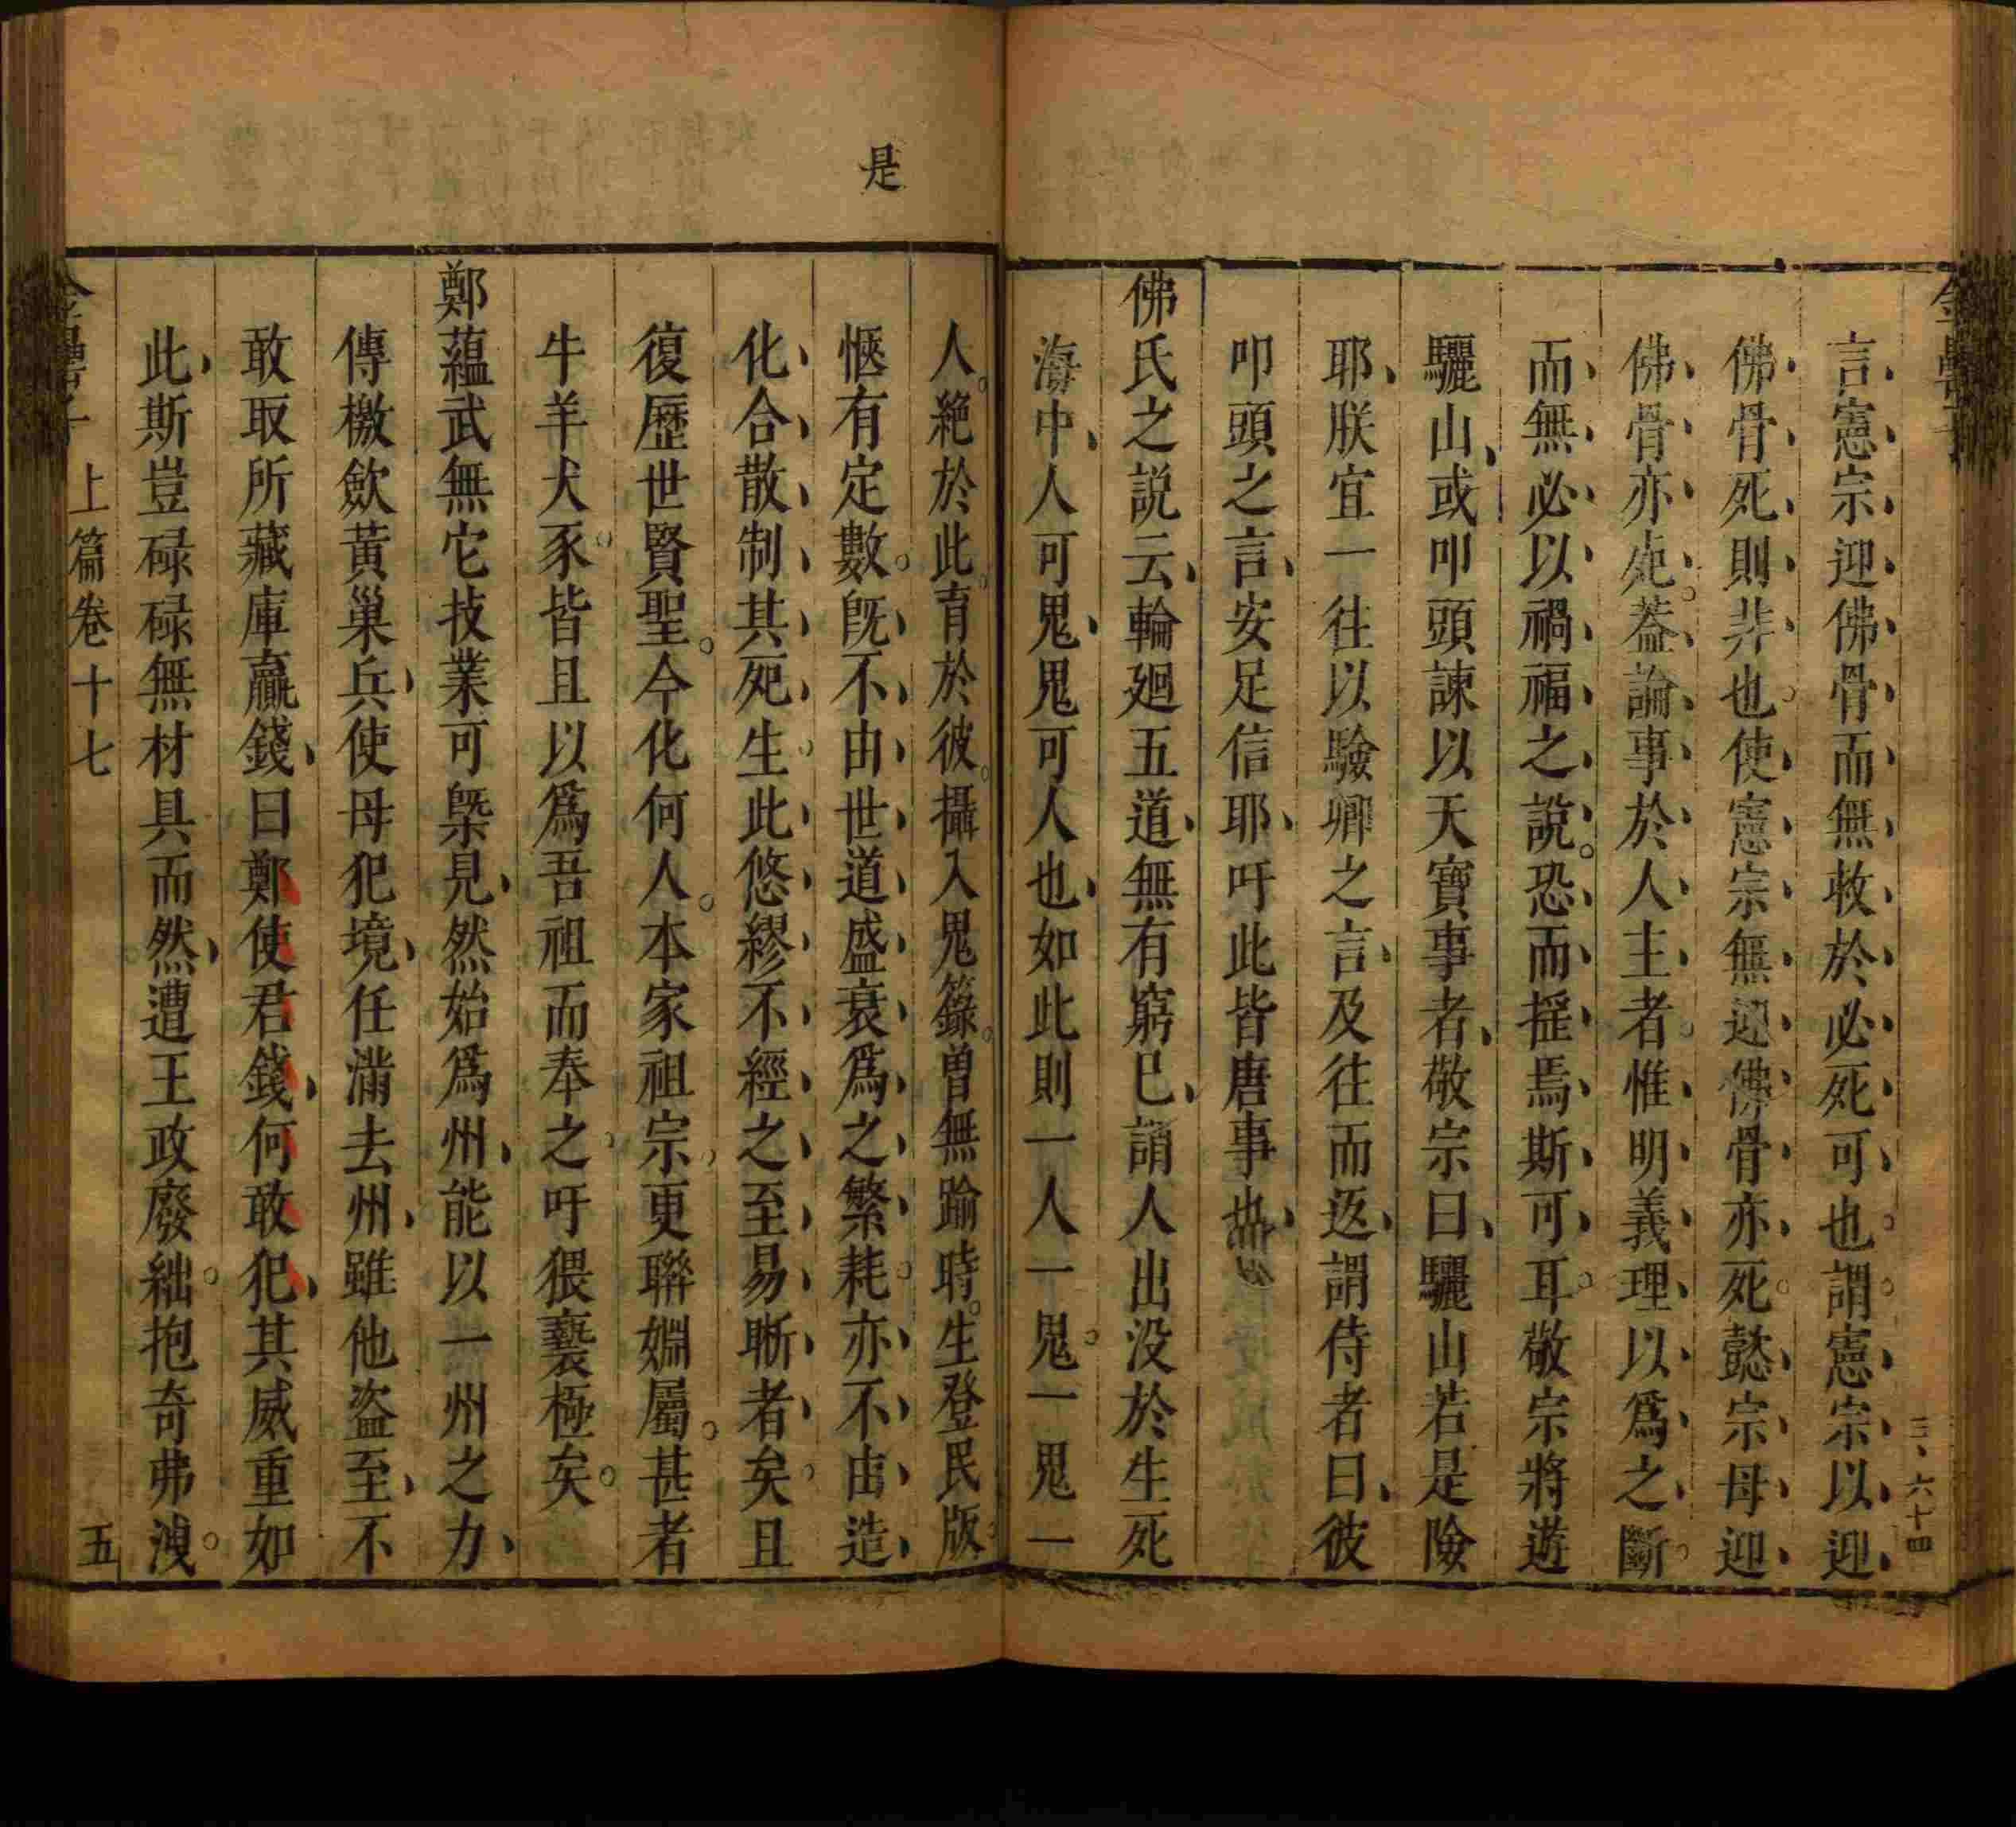 言憲宗迎佛骨而無救於必死可也謂憲宗以迎
佛骨死則非也使憲宗無迎佛骨亦死懿宗母迎
佛骨亦死蓋論事於人主者惟明義理以爲之斷
而無必以禍福之說恐而揺焉斯可耳敬宗將遊
驪山或叩頭諫以天寶事者敬宗曰驪山若是險
耶朕宜一往以驗卿之言及往而返謂侍者曰彼
叩頭之言安足信耶吁此皆唐事也
佛氏之説云輪廻五道無有窮已謂人出没於生死
海中人可鬼鬼可人也如此則一人一鬼一鬼一
人絶於此育於彼攝入鬼籙曽無踰時生登民版
愜有定數旣不由世道盛衰爲之繁耗亦不由造
化合散制其死生此悠繆不經之至易晰者矣且
復歴世賢聖今化何人本家祖宗更聯婣屬甚者
牛羊犬豕皆且以爲吾祖而奉之吁猥䙝極矣
是
鄭藴武無它技業可槩見然始爲州能以一州之力
傳檄歛黃巢兵使母犯境任滿去州雖他盜至不
敢取所藏庫贏錢曰鄭使君錢何敢犯其威重如
此斯豈碌碌無材具而然遭王政廢絀抱奇弗洩
上篇卷十七
五
六十四